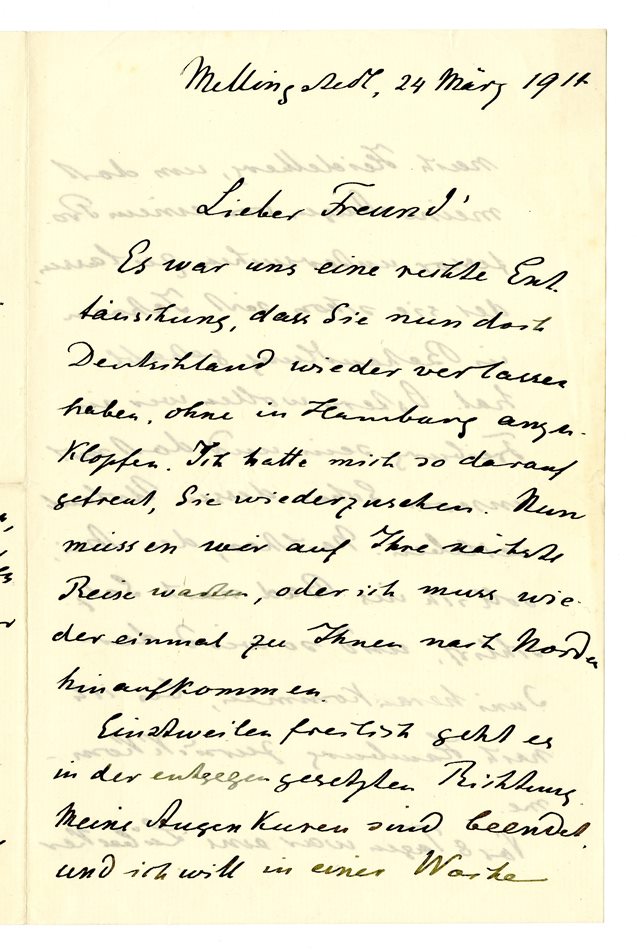 Mellingstedt, 24 März 1911
Lieber Freund!
Es war uns eine rechte Ent-
täuschung, dass Sie nun doch
Deutschland wieder verlassen
haben, ohne in Hamburg anzu-
klopfen. Ich hatte mich so darauf
gefreut, Sie wiederzusehen. Nun
müssen wir auf Ihre nächste
Reise warten, oder ich muss wie-
der einmal zu Ihnen nach Norden
hinaufkommen.
Einstweilen freilich geht es
in der entgegengesetzten Richtung.
Meine Augenkuren sind beendet,
und ich will in einer Woche